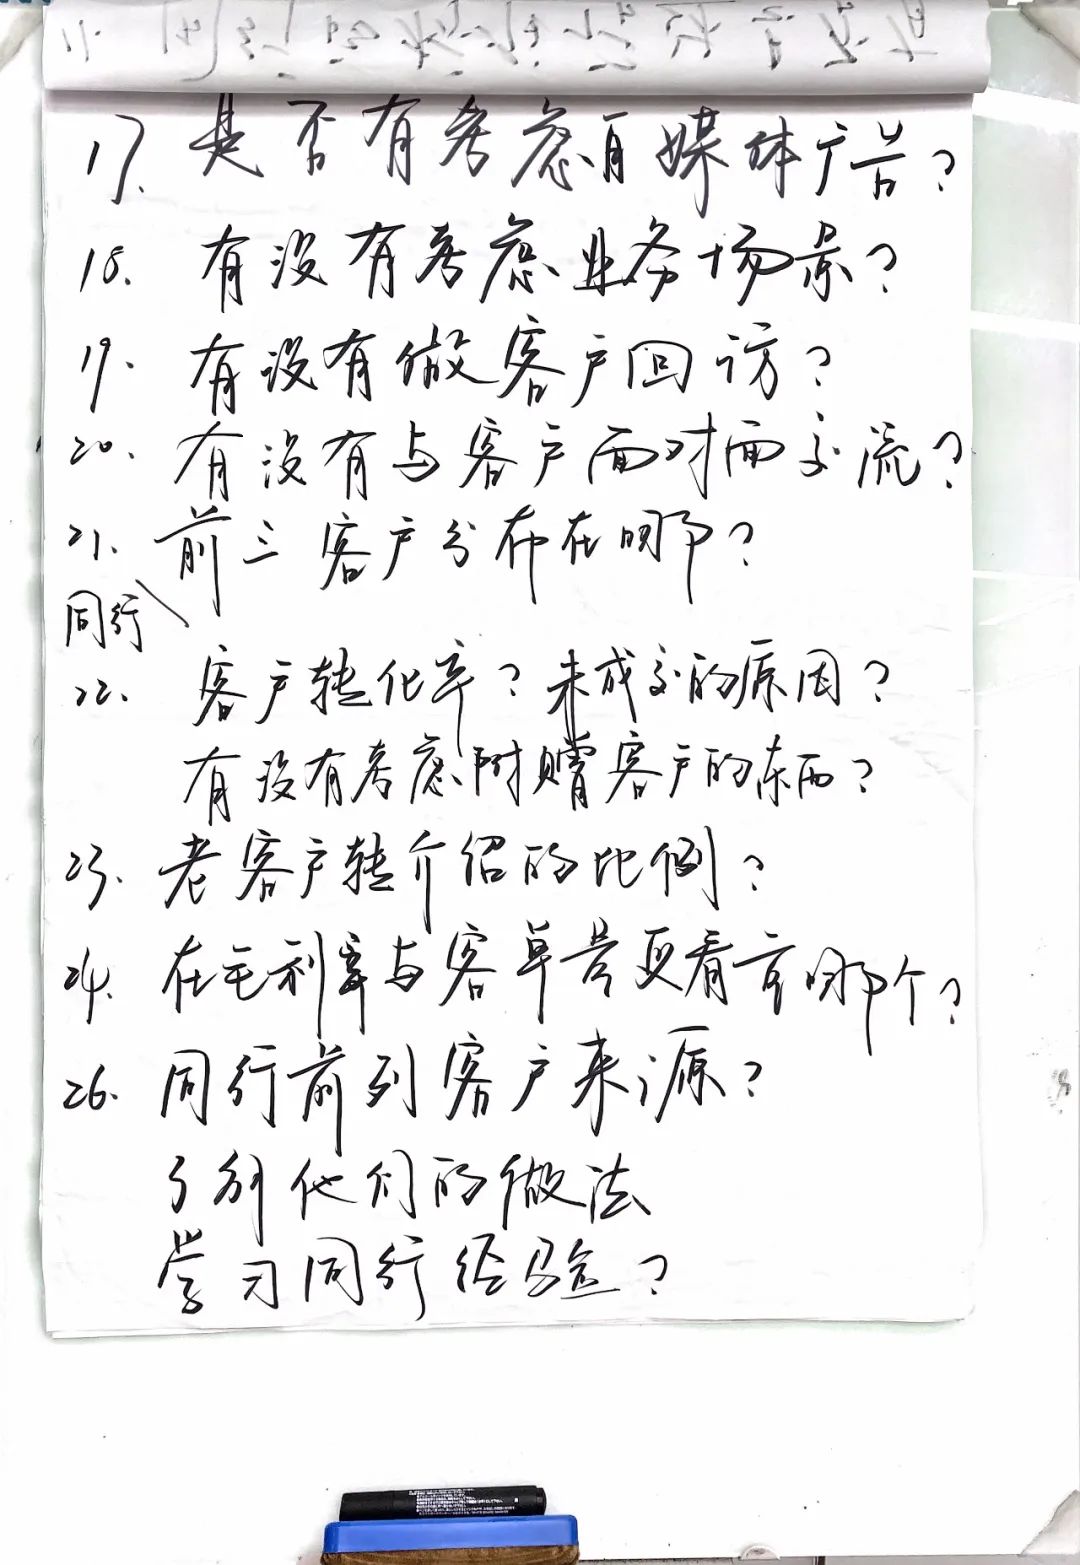 17. 是否有考虑自媒体广告?
18. 有没有考虑业务场景?
19. 有没有做客户回访?
20. 有没有与客户面对面交流?
21. 前三客户分布在哪?
同行
22. 客户转化率?未成交的原因?
有没有考虑附赠客户的东西?
23. 老客户转介绍的比例?
24. 在毛利率与客单价更看重哪个?
26. 同行前列客户来源?
了解他们的做法
学习同行经验?